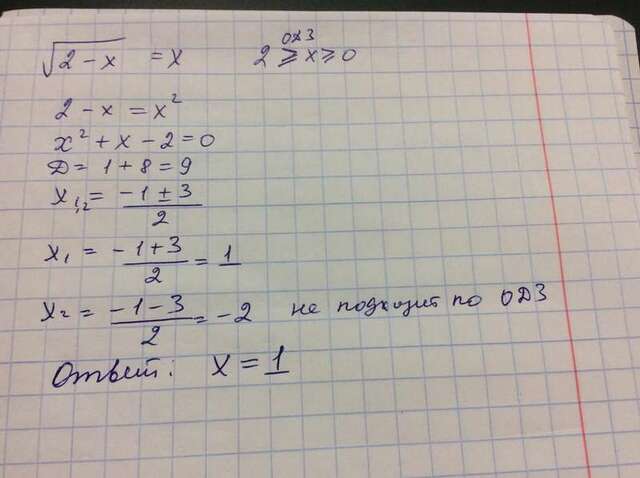 √(2 - x) = x ОДЗ 2 ≥ x ≥ 0
2 - x = x²
x² + x - 2 = 0
Д = 1 + 8 = 9
x₁,₂ = (-1 ± 3)/2
x₁ = (-1 + 3)/2 = 1
x₂ = (-1 - 3)/2 = -2 не подходит по ОДЗ
Ответ: x = 1